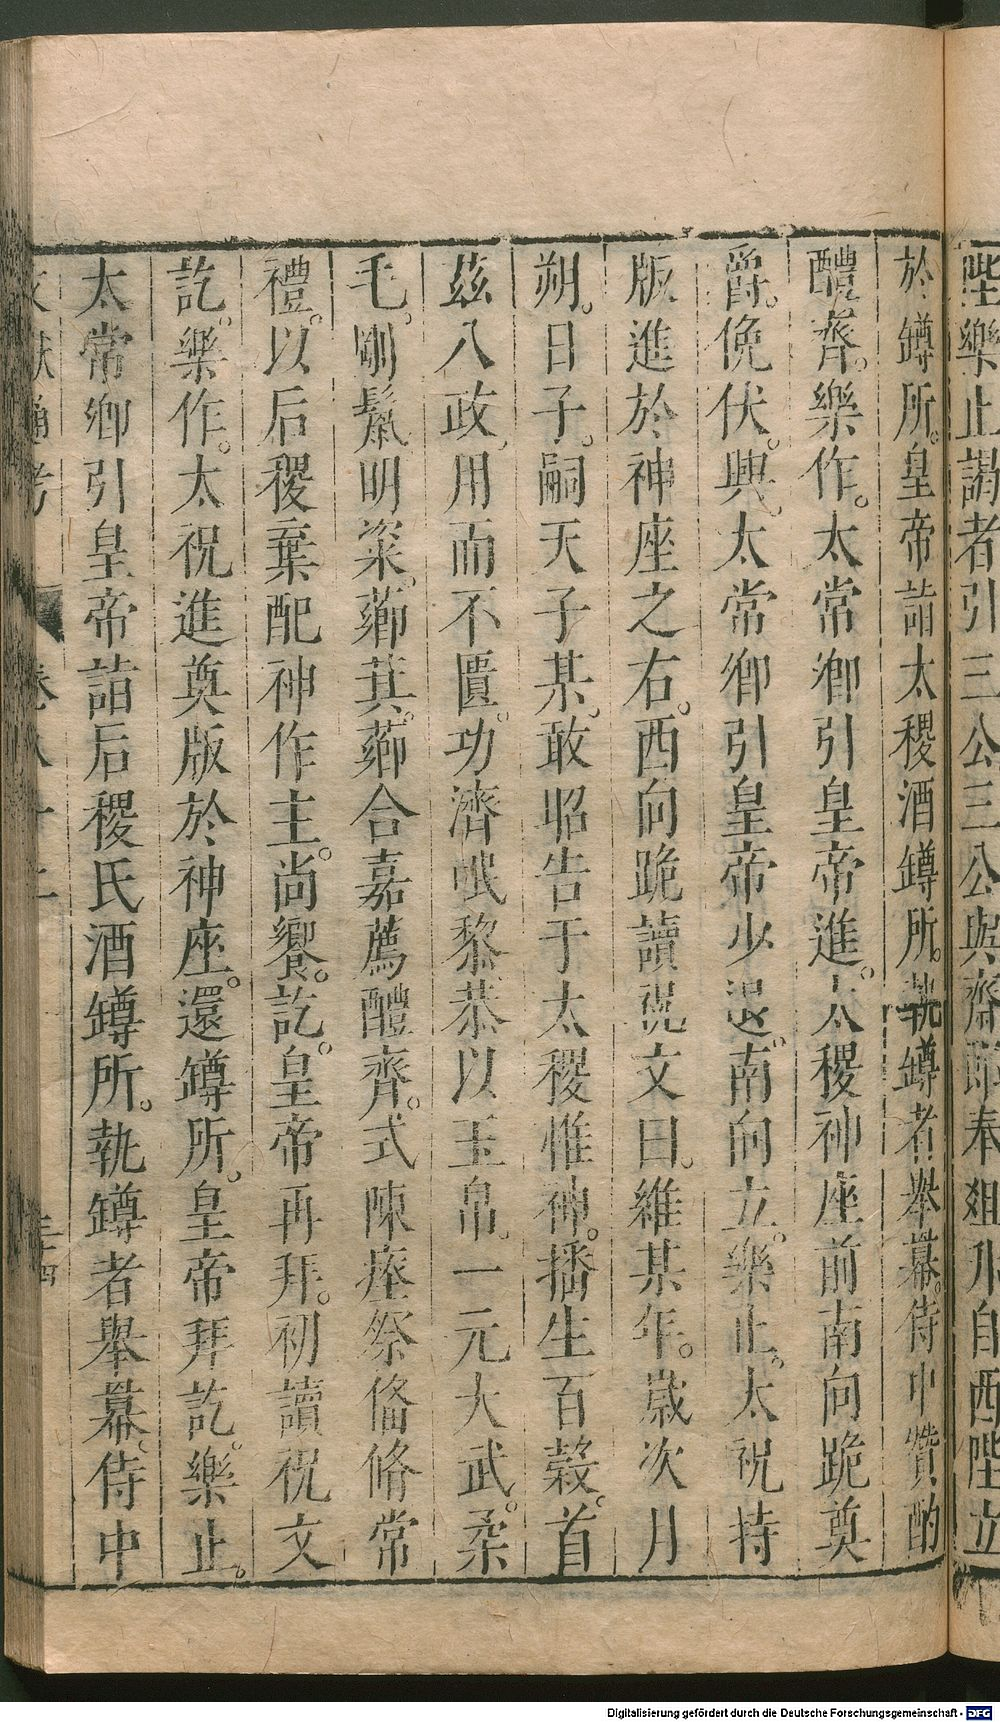 陛樂止謁者引三公三公與齋郎奉俎升自西陛立
於罇所。皇帝詣太稷酒罇所。執罇者舉羃。侍中贊酌
醴齊。樂作。太常卿引皇帝進。太稷神座前南向跪奠
爵。俛伏。興。太常卿引皇帝少退。南向立。樂止。太祝持
版進於神座之右。西向跪讀祝文曰。維某年。歲次月
朔。日子。嗣天子某。敢昭告于太稷惟神。播生百穀。首
茲八政。用而不匱。功濟甿黎。恭以玉帛。一元大武。柔
毛。剛鬣。明粢。薌萁。薌合嘉薦醴齊。式陳瘞祭俻脩常
禮。以后稷棄配神作主。尚饗。訖。皇帝再拜。初讀祝文
訖。樂作。太祝進奠版於神座。還罇所。皇帝拜訖。樂止。
太常卿引皇帝詣后稷氏酒罇所。執罇者舉羃。侍中
文獻通考 卷八十二 三十四
Digitalisierung gefördert durch die Deutsche Forschungsgemeinschaft - DFG